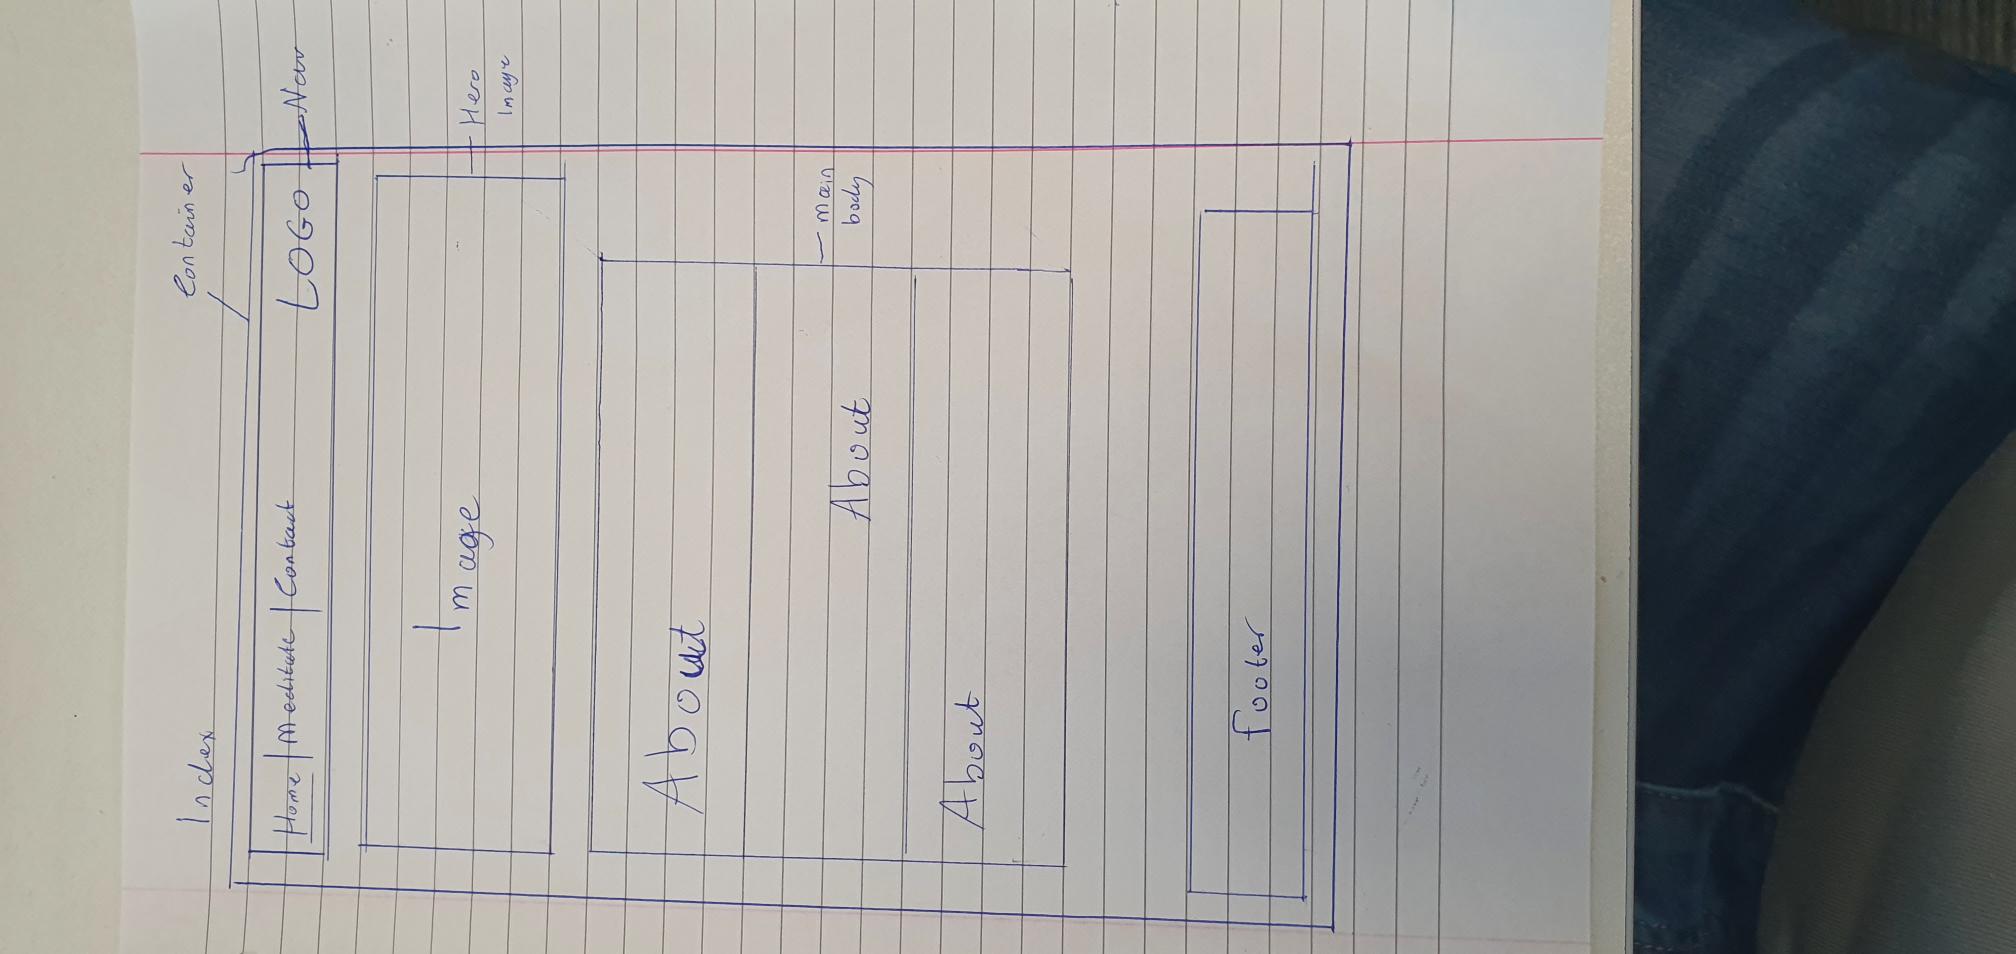 Index
Container
Home | Meditate | Contact LOGO
Nav
Image
Hero
Image
About
main
body
About
About
footer